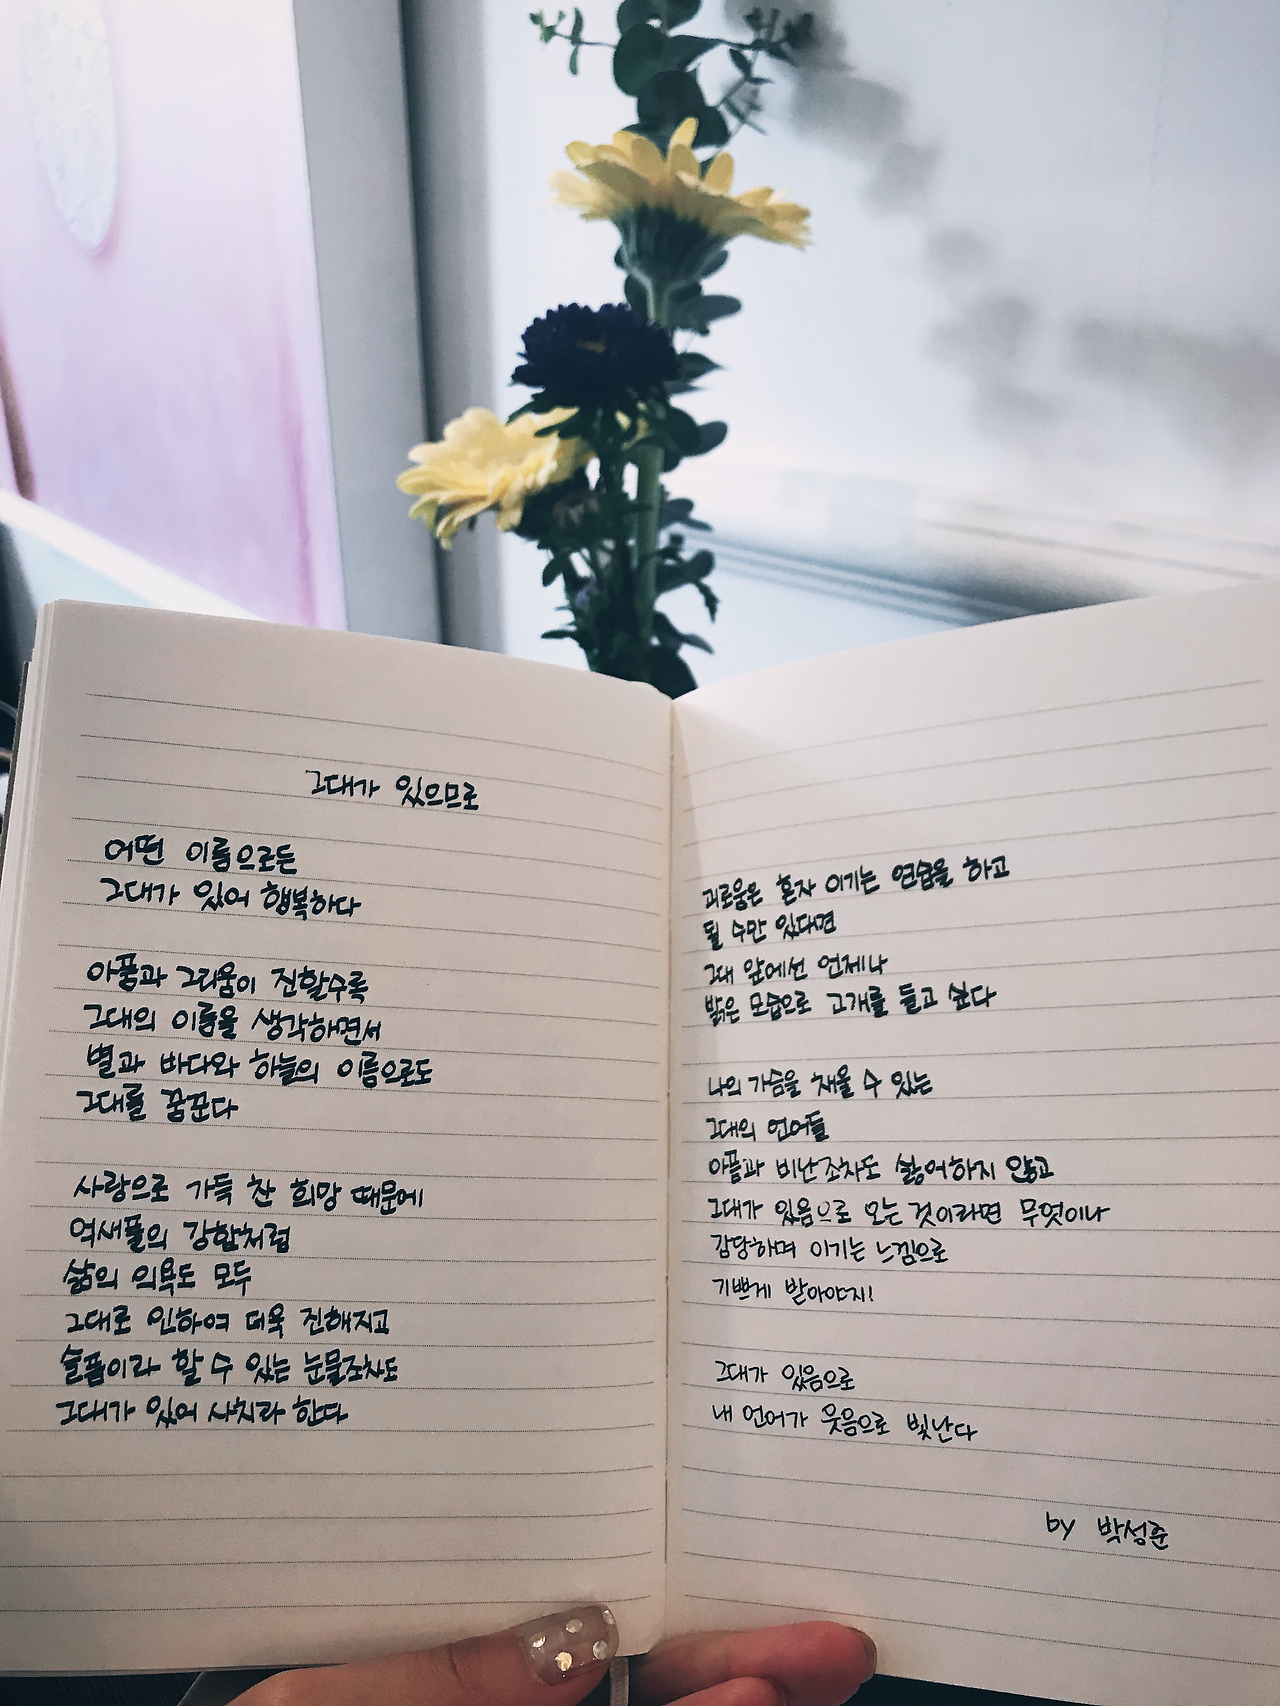 그대가 있으므로
어떤 이름으로든
그대가 있어 행복하다
아픔과 그리움이 진할수록
그대의 이름을 생각하면서
별과 바다와 하늘의 이름으로도
그대를 꿈꾼다
사랑으로 가득 찬 희망 때문에
억새풀의 강함처럼
삶의 의욕도 모두
그대로 인하여 더욱 진해지고
슬픔이라 할 수 있는 눈물조차도
그대가 있어 사치라 한다
괴로움은 혼자 이기는 연습을 하고
될 수만 있다면
그대 앞에선 언제나
밝은 모습으로 고개를 들고 싶다
나의 가슴을 채울 수 있는
그대의 언어들
아픔과 비난조차도 싫어하지 않고
그대가 있음으로 오는 것이라면 무엇이나
감당하며 이기는 느낌으로
기쁘게 받아야지!
그대가 있음으로
내 언어가 웃음으로 빛난다
by 박성준